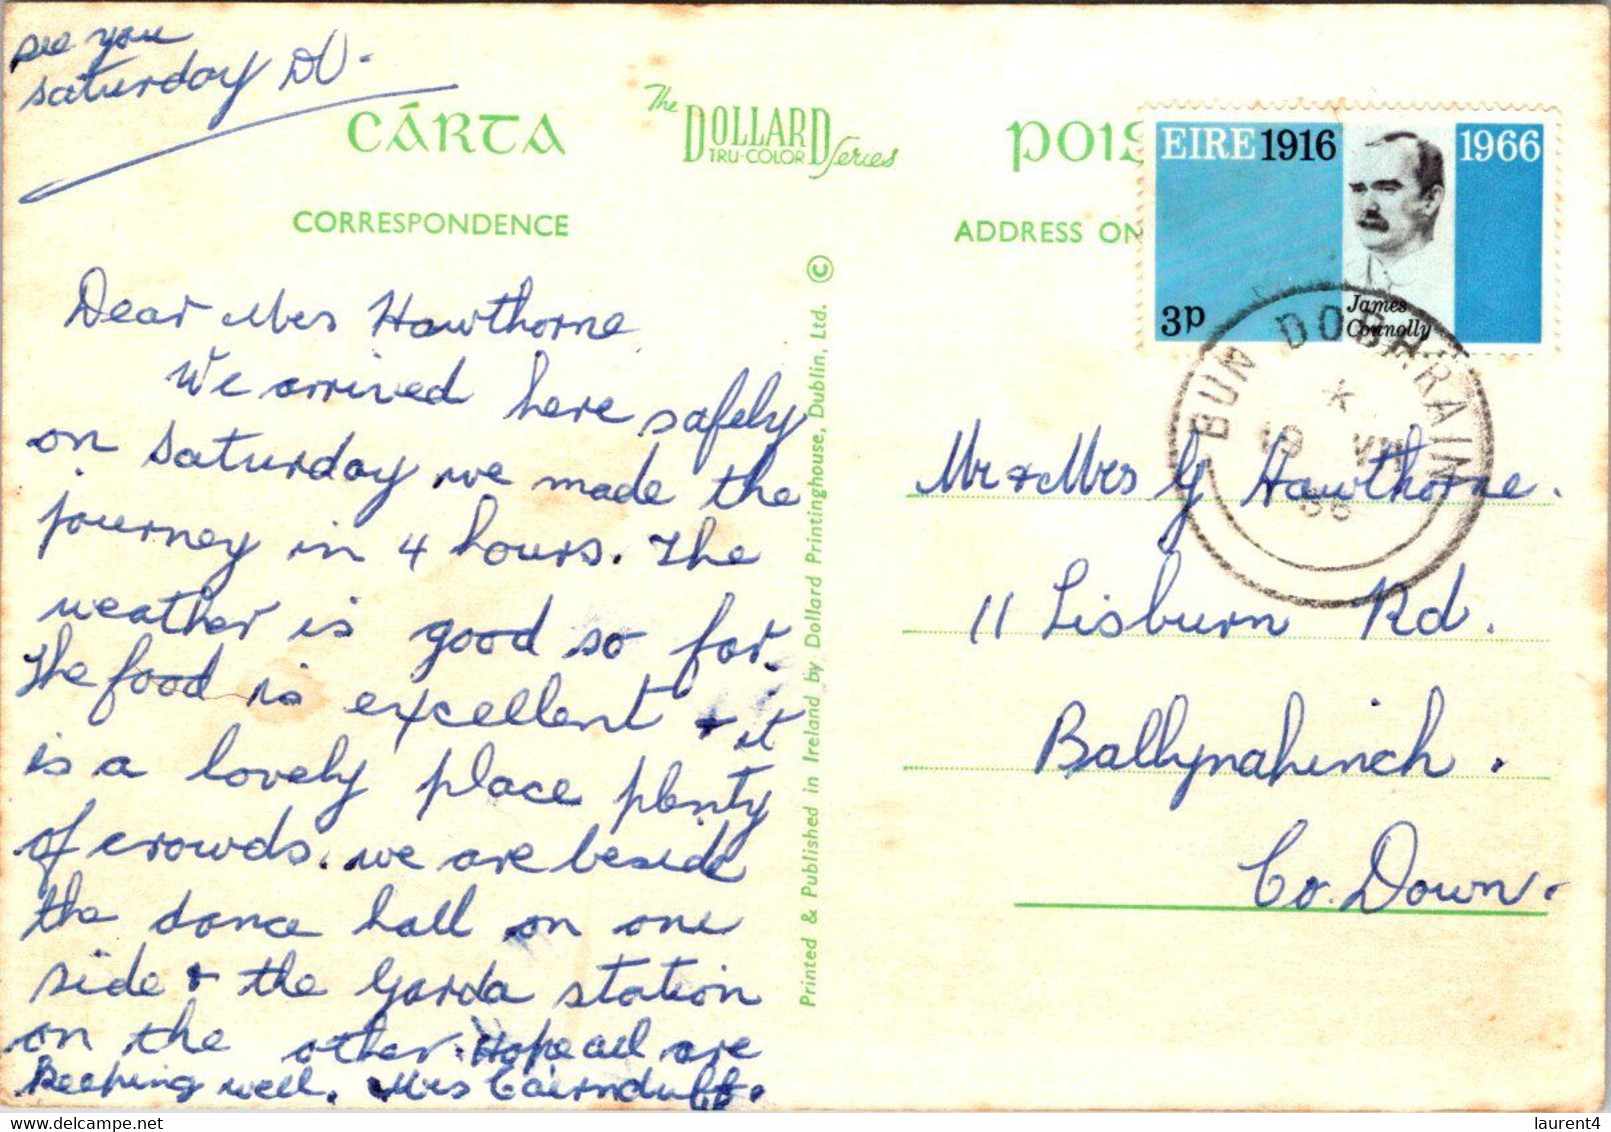 see you
saturday DV.
CÁRTA
The
DOLLARD
TRU-COLOR
Series
POIS
CORRESPONDENCE
ADDRESS ON
EIRE 1916
1966
3p
James
Connolly
BUN DOBHRAIN
19 VII
66
Dear Mrs Hawthorne
We arrived here safely
on Saturday we made the
journey in 4 hours. The
weather is good so far.
The food is excellent + it
is a lovely place plenty
of crowds. we are beside
the dance hall on one
side & the Garda station
on the other. Hope all are
Keeping well. Mrs Cairnduff.
Printed & Published in Ireland by Dollard Printinghouse, Dublin, Ltd. ©
Mr & Mrs G Hawthorne.
11 Lisburn Rd.
Ballynahinch.
Co. Down.
laurent4